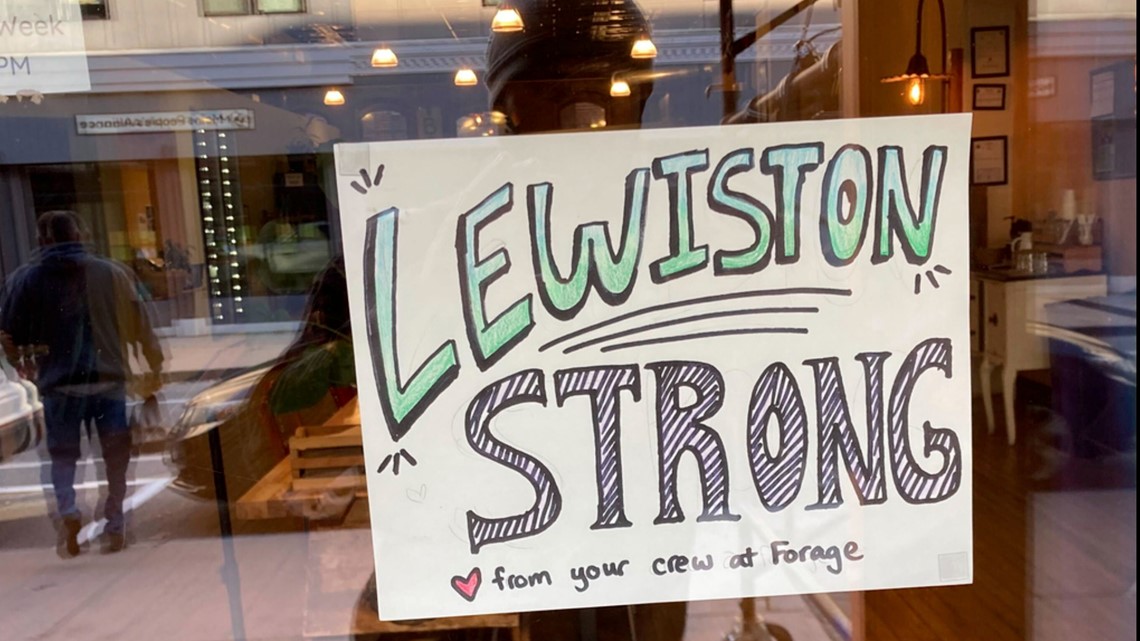 Week
PM
People's Alliance
LEWISTON
STRONG
from your crew at Forage